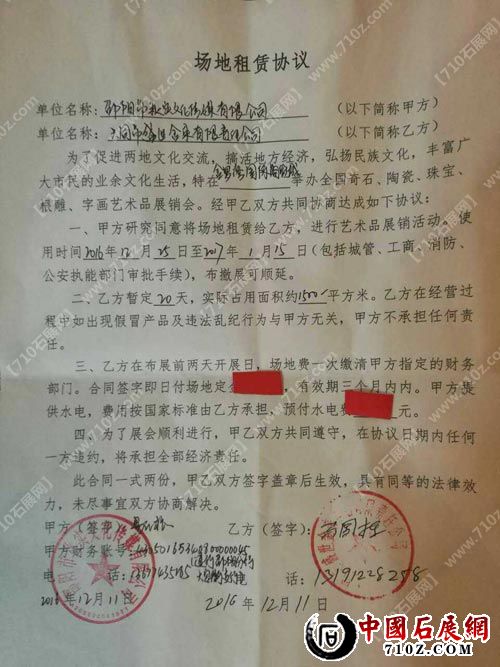 场地租赁协议
单位名称: 邵阳市 文化传媒有限公司 (以下简称甲方)
单位名称: 有限责任公司 (以下简称乙方)
为了促进两地文化交流，搞活地方经济，弘扬民族文化，丰富广
大市民的业余文化生活，特在 举办全国奇石、陶瓷、珠宝、
根雕、字画艺术品展销会。经甲乙双方共同协商达成如下协议:
一、甲方研究同意将场地租赁给乙方，进行艺术品展销活动。使
用时间2016年12月25日至2017年1月15日(包括城管、工商、消防、
公安执能部门审批手续)，布撤展可顺延。
二、乙方暂定20天，实际占用面积约1500平方米。乙方在经营过
程中如出现假冒产品及违法乱纪行为与甲方无关，甲方不承担任何责
任。
三、乙方在布展前两天开展日，场地费一次缴清甲方指定的财务
部门。合同签字即日付场地定金 ，有效期三个月内内。甲方提
供水电，费用按国家标准由乙方承担，预付水电费 元。
四、为了展会顺利进行，甲乙双方共同遵守，在协议日期内任何
一方违约，将承担全部经济责任。
此合同一式两份，甲乙双方签字盖章后生效，具有同等的法律效
力，未尽事宜双方协商解决。
甲方(签字): 乙方(签字):
甲方财务账号:
电话: 话: 13191228258
2016年12月11日 2016年12月11日
中國石展網
710z.com
【710石展网】
www.710z.com